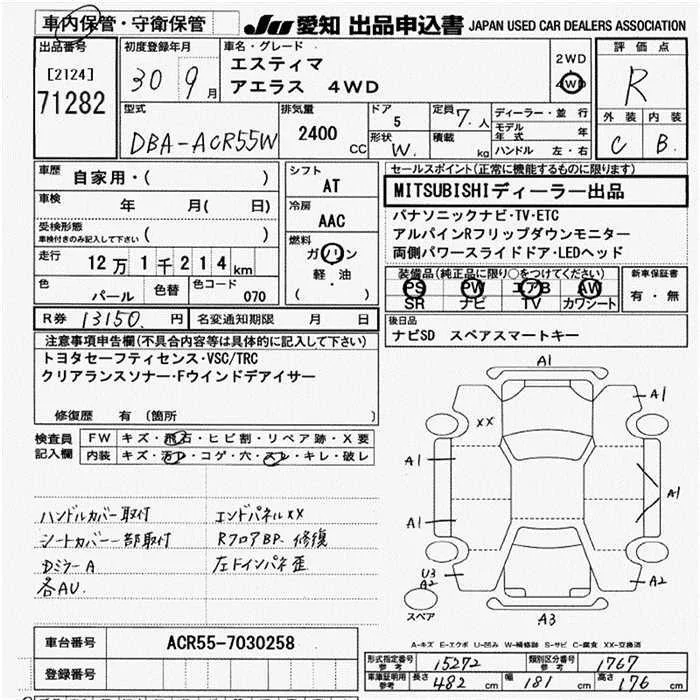 車内保管・守衛保管
JU 愛知 出品申込書 JAPAN USED CAR DEALERS ASSOCIATION
出品番号
[2124]
71282
初度登録年月
30 9 月
車名・グレード
エスティマ
アエラス 4WD
2WD
4WD
評価点
R
外装 内装
C B.
型式
DBA-ACR55W
排気量
2400 CC
ドア
5
形状
W.
定員
7. 人
積載
kg
ディーラー・並行
モデル年式 年
ハンドル 左・右
車歴
自家用・( )
車検
年 月( 日)
受検形態
車検付きのみ記入して下さい ( )
走行
12万1千214km
色
パール
色替
色コード
070
シフト
AT
冷房
AAC
燃料
ガソリン
軽・油
( )
セールスポイント(正常に機能するものに限ります)
MITSUBISHIディーラー出品
パナソニックナビ・TV・ETC
アルパインRフリップダウンモニター
両側パワースライドドア・LEDヘッド
装備品(純正品に限り○をつけてください)
PS PW エアB AW
SR ナビ TV カワシート
新車保証書
有・無
R券 13150. 円
名変通知期限 月 日
後日品
ナビSD スペアスマートキー
注意事項申告欄(不具合内容等は具体的に記入して下さい)
トヨタセーフティセンス・VSC/TRC
クリアランスソナー・Fウインドデアイサー
修復歴 有 (箇所 )
検査員
記入欄
FW キズ・飛石・ヒビ割・リペア跡・X要
内装 キズ・汚レ・コゲ・穴・スレ・キレ・破レ
ハンドルカバー取付
シートカバー一部取付
Dミラー A
各AU.
エンドパネルXX
RフロアBP. 修復
左ドインパネ歪
A1
XX
A1
A1
A1
A1
U3
A2
A2
A3
スペア
A-キズ E-エクボ U-凹み W-補修跡 S-サビ C-腐食 XX-交換済
車台番号
ACR55-7030258
登録番号
形式指定番号
参考
15272
類別区分番号
参考
1767
車庫証明用
参考
長さ 482 cm
幅 181 cm
高さ 176 cm